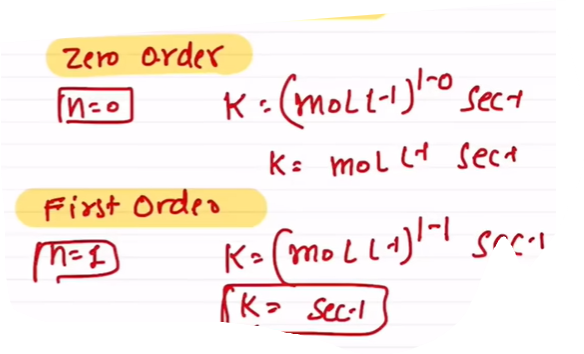 Zero Order
n=0 K = (mol L-1)^1-0 Sec-1
K = mol L-1 Sec-1
First Order
n=1 K = (mol L-1)^1-1 Sec-1
K = Sec-1